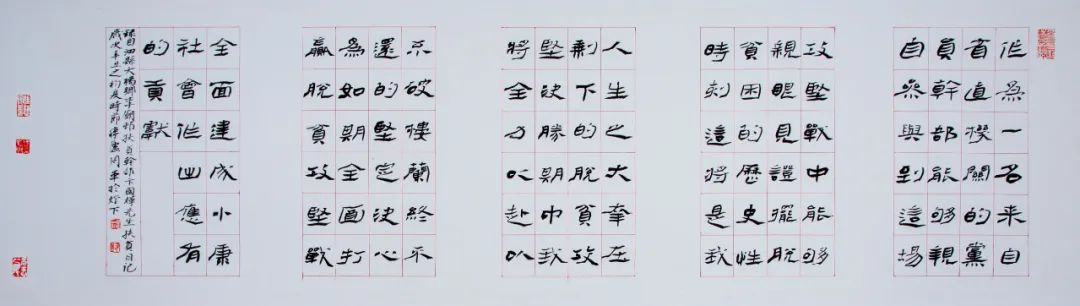 作為一名来自
省直機關的黨
員幹部能够親
自參與到這場
攻堅戰中能够
親眼見證擺脱
貧困的歷史性
時刻這將是我
人生之大幸在
剩下的脱貧攻
堅决勝期中我
將全力以赴以
不破樓蘭終不
還的堅定决心
為如期全面打
贏脱貧攻堅戰
全面建成小康
社會作出應有
的貢獻
録自泗縣大楊鄉村扶貧幹部卞國輝先生扶貧日记
歲次辛丑之初夏時節於灯下